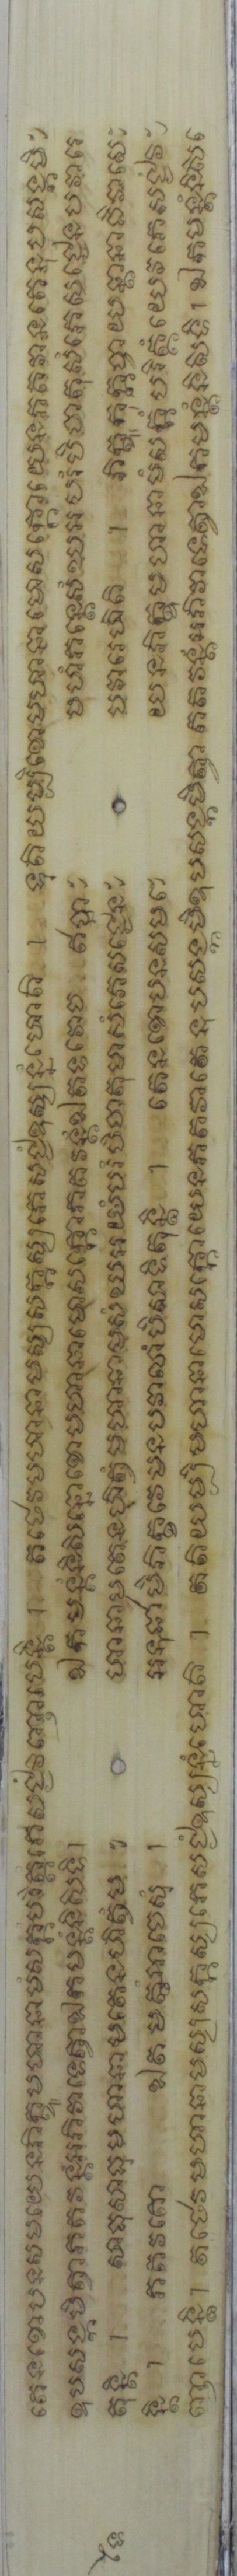 តេនខោបនសមយេនភិក្ខូមហានាមំសក្កំបរិត្តំភេសជ្ជំវិញ្ញាបេន្តិ । តថេវមហានាមស្សសក្កស្សភេសជ្ជំឧស្សន្នំហោតិ । ទុតិយម្បិខោមហានាមោសក្កោយេនភគវាតេនុបសង្កមិ
ឧបសង្កមិត្វាភគវន្តំអភិវាទេត្វាឯកមន្តំនិសិទិ। ឯកមន្តំនិសិន្នោខោមហានាមោសក្កោភគវន្តំឯតទវោច ឥច្ឆា មហំភន្តេសំឃអបរំបិចាតុសំភេសជ្ជេនបវារេ
តុន្តិ । សាធុសាធុមហានាមតេនហិត្វំម ហានាមតេនហិត្វំមហានាមសំឃអបរំបិចាតុមាសំភេសជ្ជេន បវារេហិតិ । ភិក្ខូកុក្កុច្ចាយន្តានាធិវាសេ
ន្តិ । ភគវតោ ឯតមត្ថំអារោចេសុំ । អនុជានាមិភិក្ខវេបុនបវារណំបិសាទិតុន្តិ । តេនខោបនសម យេនភិក្ខូមហានាមំសក្កំបរិត្តំយេវភេសជ្ជំវិ
ញ្ញាបេន្តិ। តថេវមហានាមស្សសក្កស្សភេសជ្ជំឧស្សន្នំហោតិ । តតិយម្បិមហានាមោសក្កោយេនភគវាតេនុបសង្កមិឧបសង្កមិត្វា ភគវន្តំអភិវាទេត្វាឯកមន្តំនិសិទិ। ឯកមន្តំនិសិ